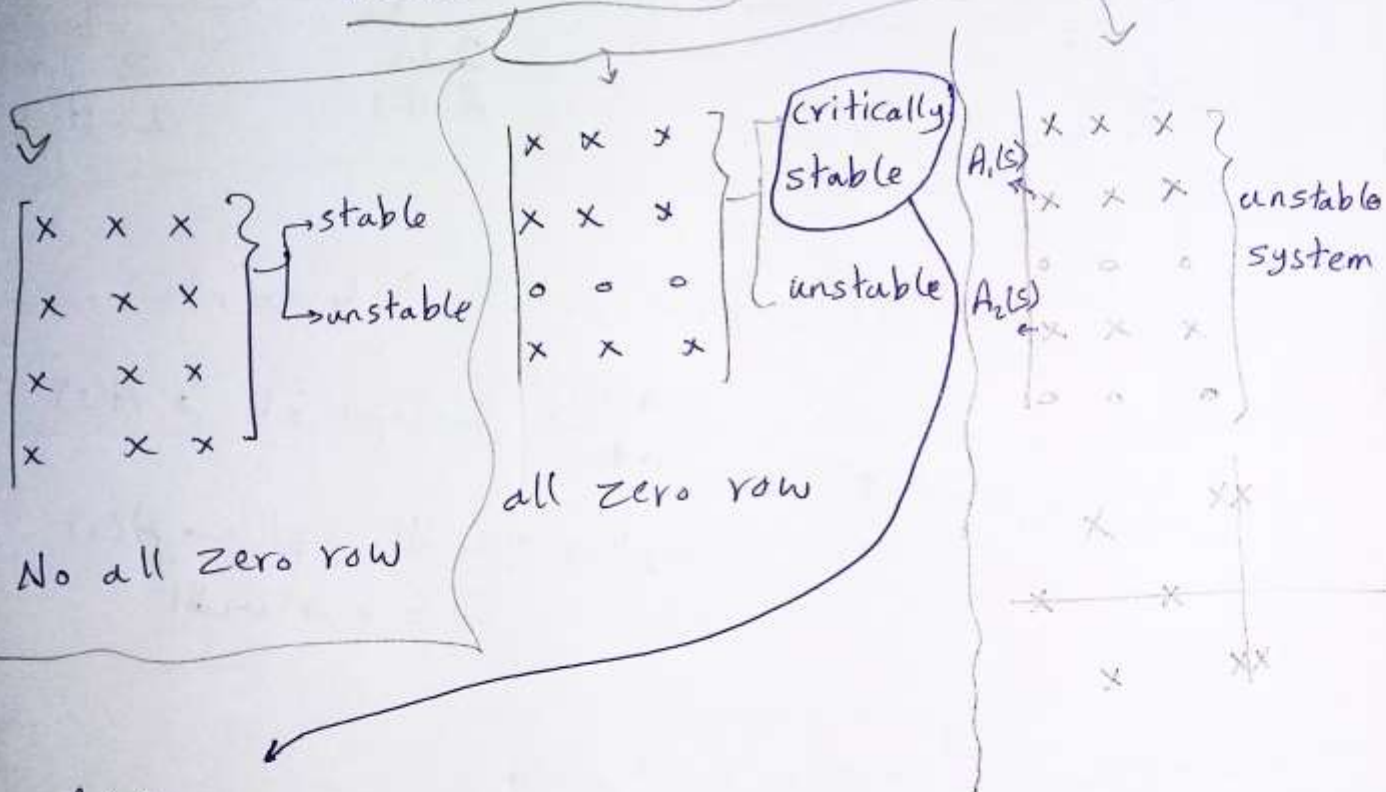 x x x
x x x
x x x
x x x
stable
unstable
No all zero row
x x x
x x x
o o o
x x x
critically
stable
unstable
all zero row
A₁(s)
A₂(s)
x x x
x x x
o o o
x x x
o o o
unstable
system
x xx
x x
x xx